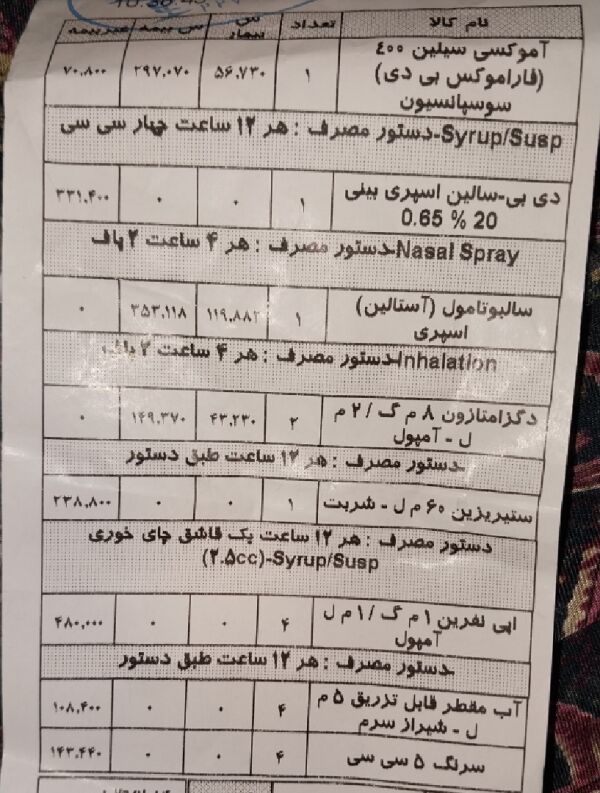 نام کالا تعداد س بیمار س بیمه غیربیمه
آموکسی سیلین ۴۰۰
(فاراموکس بی دی) ۱ ۵۶,۷۳۰ ۲۹۷,۰۷۰ ۷۰,۸۰۰
سوسپانسیون
Syrup/Susp-دستور مصرف : هر ۱۲ ساعت چهار سی سی
دی بی-سالین اسپری بینی ۱ ۰ ۰ ۳۳۱,۴۰۰
0.65 % 20
Nasal Spray-دستور مصرف : هر ۴ ساعت ۲ پاف
سالبوتامول (آستالین) ۱ ۱۱۹,۸۸۲ ۳۵۳,۱۱۸ ۰
اسپری
Inhalation-دستور مصرف : هر ۴ ساعت ۲ پاف
دگزامتازون ۸ م گ / ۲ م ۲ ۴۳,۲۳۰ ۱۴۹,۳۷۰ ۰
ل - آمپول
-دستور مصرف : هر ۱۲ ساعت طبق دستور
ستیریزین ۶۰ م ل - شربت ۱ ۰ ۰ ۲۳۸,۸۰۰
دستور مصرف : هر ۱۲ ساعت یک قاشق چای خوری
(۲.۵cc)-Syrup/Susp
اپی نفرین ۱ م گ / ۱ م ل ۴ ۰ ۰ ۴۸۰,۰۰۰
آمپول
-دستور مصرف : هر ۱۲ ساعت طبق دستور
آب مقطر قابل تزریق ۵ م ۴ ۰ ۰ ۱۰۸,۴۰۰
ل - شیراز سرم
سرنگ ۵ سی سی ۴ ۰ ۰ ۱۴۳,۴۴۰